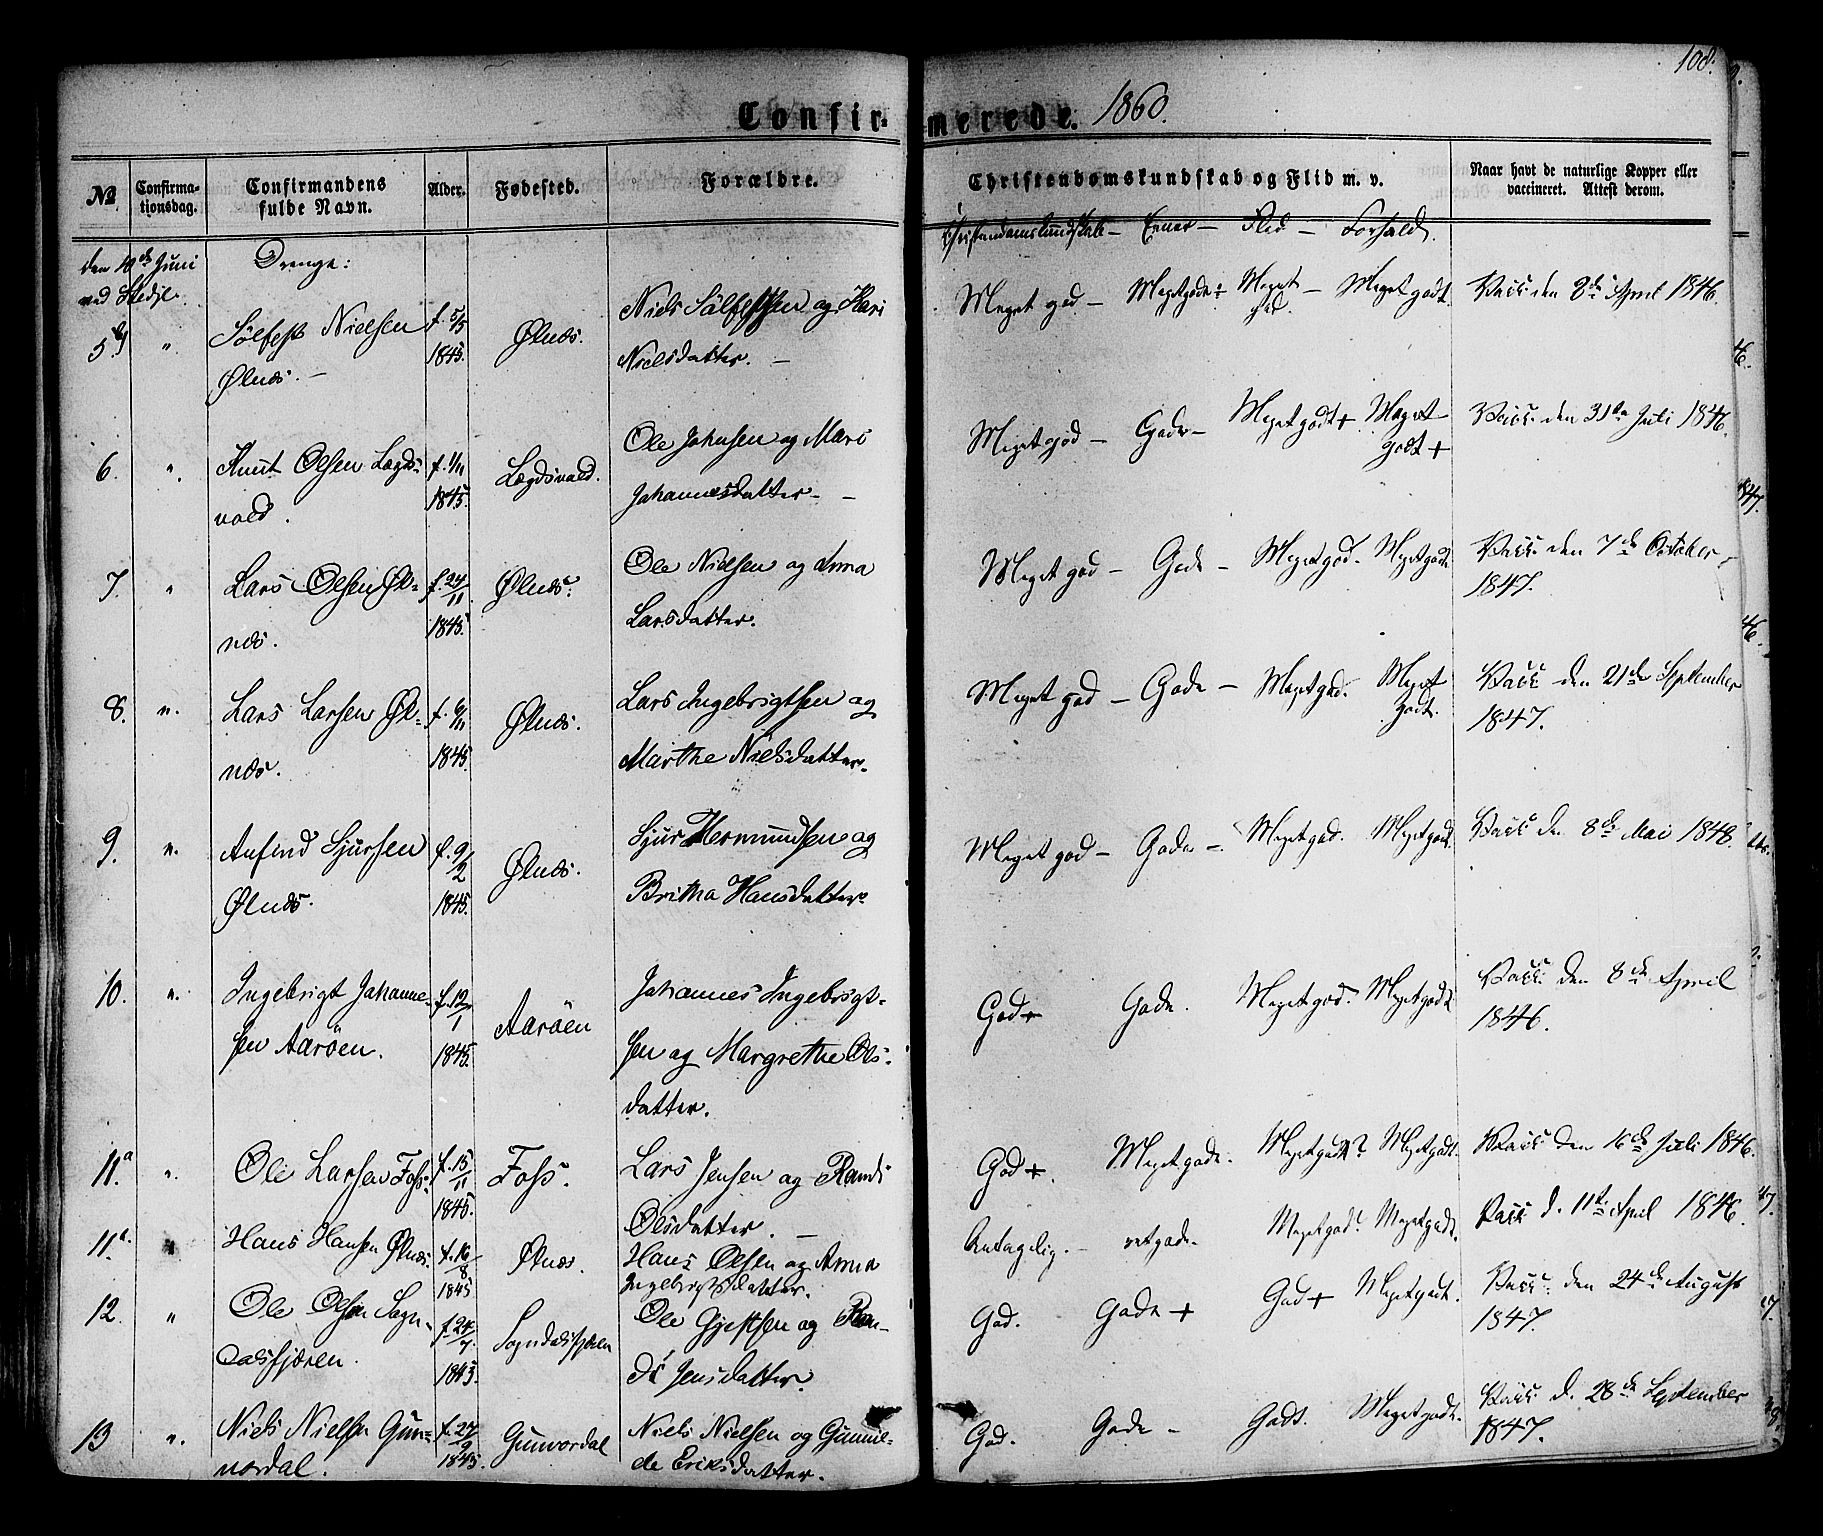 108.
Confirmerede. 1860.
№ Confirmationsdag. Confirmandens fulde Navn. Alder. Fødested. Forældre. Christendomskundskab og Flid m. v. Naar havt de naturlige Kopper eller vaccineret. Attest derom.
Christendomskundskab – Evner – Flid – Forhold.
den 10de Juni Drenge:
ved Stedje.
5 " Sølfest Nielsen f. 5/5 Ølnæs. Niels Sølfestsen og Kari Meget god – Meget gode Meget – Meget godt. Vacc. den 8de April 1846.
Ølnæs. – 1845. Nielsdatter. – god.
6. " Knut Olsen Lægds- f. 1/11 Lægdsvold. Ole Johnsen og Mari Meget god – Gode – Meget godt + Meget Vacc. den 31te Juli 1846.
vold. 1845. Johannesdatter – godt +
7. " Lars Olsen Øl- f. 24/11 Ølnæs. Ole Nielsen og Anna Meget god – Gode – Meget god. Meget godt. Vacc. den 7de October
næs. 1845. Larsdatter. 1847.
8. " Lars Larsen Øl- f. 6/11 Ølnæs. Lars Ingebrigtsen og Meget god – Gode – Meget god. Meget Vacc. den 21de September
næs. 1845. Marthe Nielsdatter. godt. 1847.
9. " Anfind Sjursen f. 9/2 Ølnæs. Sjur Hermundsen og Meget god – Gode – Meget god. Meget godt. Vacc. den 8de Mai 1848.
Ølnæs. 1845. Britha Hansdatter.
10. " Ingebrigt Johanne- f. 12/1 Aarøen Johannes Ingebrigt- God + Gode. Meget god. Meget godt. Vacc. den 8de April
sen Aarøen. 1845. sen og Margrethe Ols- 1846.
datter.
11.a " Ole Larsen Foss. f. 15/11 Foss. Lars Jensen og Randi God +. Meget gode. Meget god? Meget godt. Vacc. den 16de Juli 1846.
1845. Olsdatter. –
11. " Hans Hansen Ølnæs. f. 16/8 Ølnæs. Hans Olsen og Anna Antagelig. – Meget god. Meget godt. Vacc. d. 11te April 1846.
1845 Ingebrigtsdatter.
12. " Ole Olsen Sogn- f. 24/7 Sogndalsfjæren Ole Gjestsen og Ran- God. Gode + God + Meget godt. Vacc. den 24de August
dalsfjæren. 1845. di Jensdatter. 1847.
13 " Niels Nielsen Gun- f. 27/9 Gunvordal Niels Nielsen og Gunnil- God. Gode – Godt. Meget godt. Vacc. d. 28de September
vordal. 1845. de Eriksdatter. 1847.